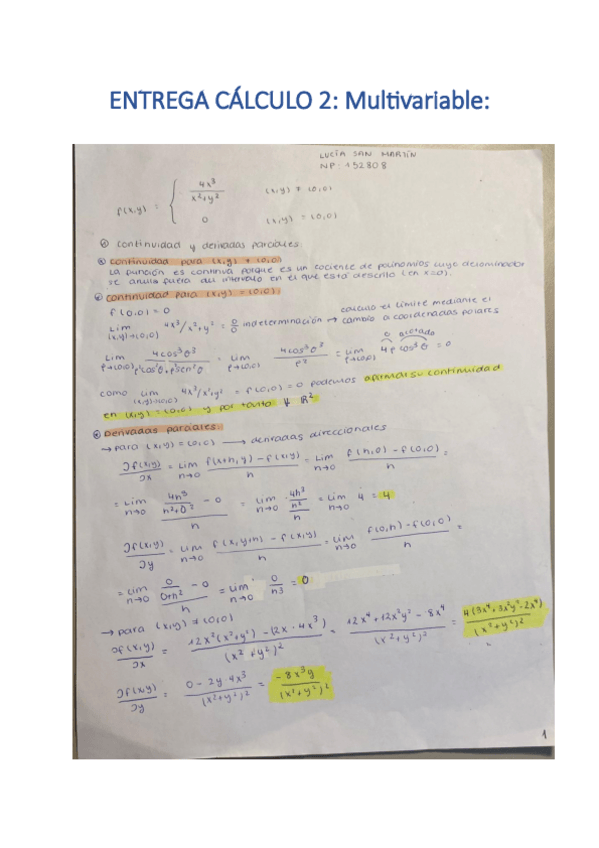 ENTREGA CÁLCULO 2: Multivariable:
LUCÍA SAN MARTÍN
NP: 152808
f(x,y) = { 4x³/x²+y² (x,y) ≠ (0,0)
0 (x,y) = (0,0)
continuidad y derivadas parciales
continuidad para (x,y) ≠ (0,0)
La función es continua porque es un cociente de polinomios cuyo denominador
se anula fuera del intervalo en el que está descrito (en x=0).
continuidad para (x,y) = (0,0):
f(0,0) = 0
calculo el límite mediante el
lim (x,y)→(0,0) 4x³/x²+y² = 0/0 indeterminación → cambio a coordenadas polares
0 acotado
como lim (x,y)→(0,0) 4x³/x²+y² = f(0,0) = 0 podemos afirmar su continuidad
en (x,y) = (0,0) y por tanto ∀ R²
Derivadas parciales:
→ para (x,y) = (0,0) → derivadas direccionales
∂f(x,y)/∂x = lim n→0 f(x+h,y) - f(x,y)/h = lim n→0 f(h,0) - f(0,0)/h =
= lim n→0 4h³/h²+0² - 0/h = lim n→0 4h³/h²/h = lim n→0 4 = 4
∂f(x,y)/∂y = lim n→0 f(x,y+h) - f(x,y)/h = lim n→0 f(0,h) - f(0,0)/h =
= lim n→0 0/0+h² - 0/h = lim n→0 0/h3 = 0
→ para (x,y) ≠ (0,0)
∂f(x,y)/∂x = 12x²(x²+y²) - (2x · 4x³)/(x²+y²)² = 12x⁴ + 12x²y² - 8x⁴/(x²+y²)² = 4(3x⁴+3x²y²-2x⁴)/(x²+y²)²
∂f(x,y)/∂y = 0 - 2y·4x³/(x²+y²)² = -8x³y/(x²+y²)²
1